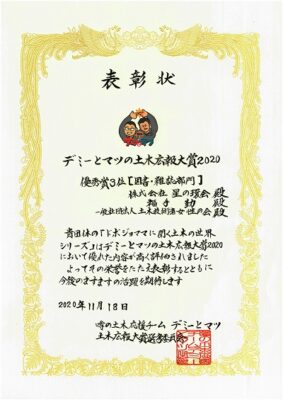 表彰状
デミーとマツの土木広報大賞2020
優秀賞3位[図書・雑誌部門]
株式会社 星の環会 殿
福手 勤 殿
一般社団法人 土木技術者女性の会 殿
貴団体の「ドボジョママに聞く土木の世界
シリーズ」はデミーとマツの土木広報大賞2020
において優れた内容が高く評価されました
よってその栄誉をたたえ表彰するとともに
今後のますますの活躍を期待します
2020年11月18日
噂の土木応援チーム デミーとマツ
土木広報大賞選考委員会